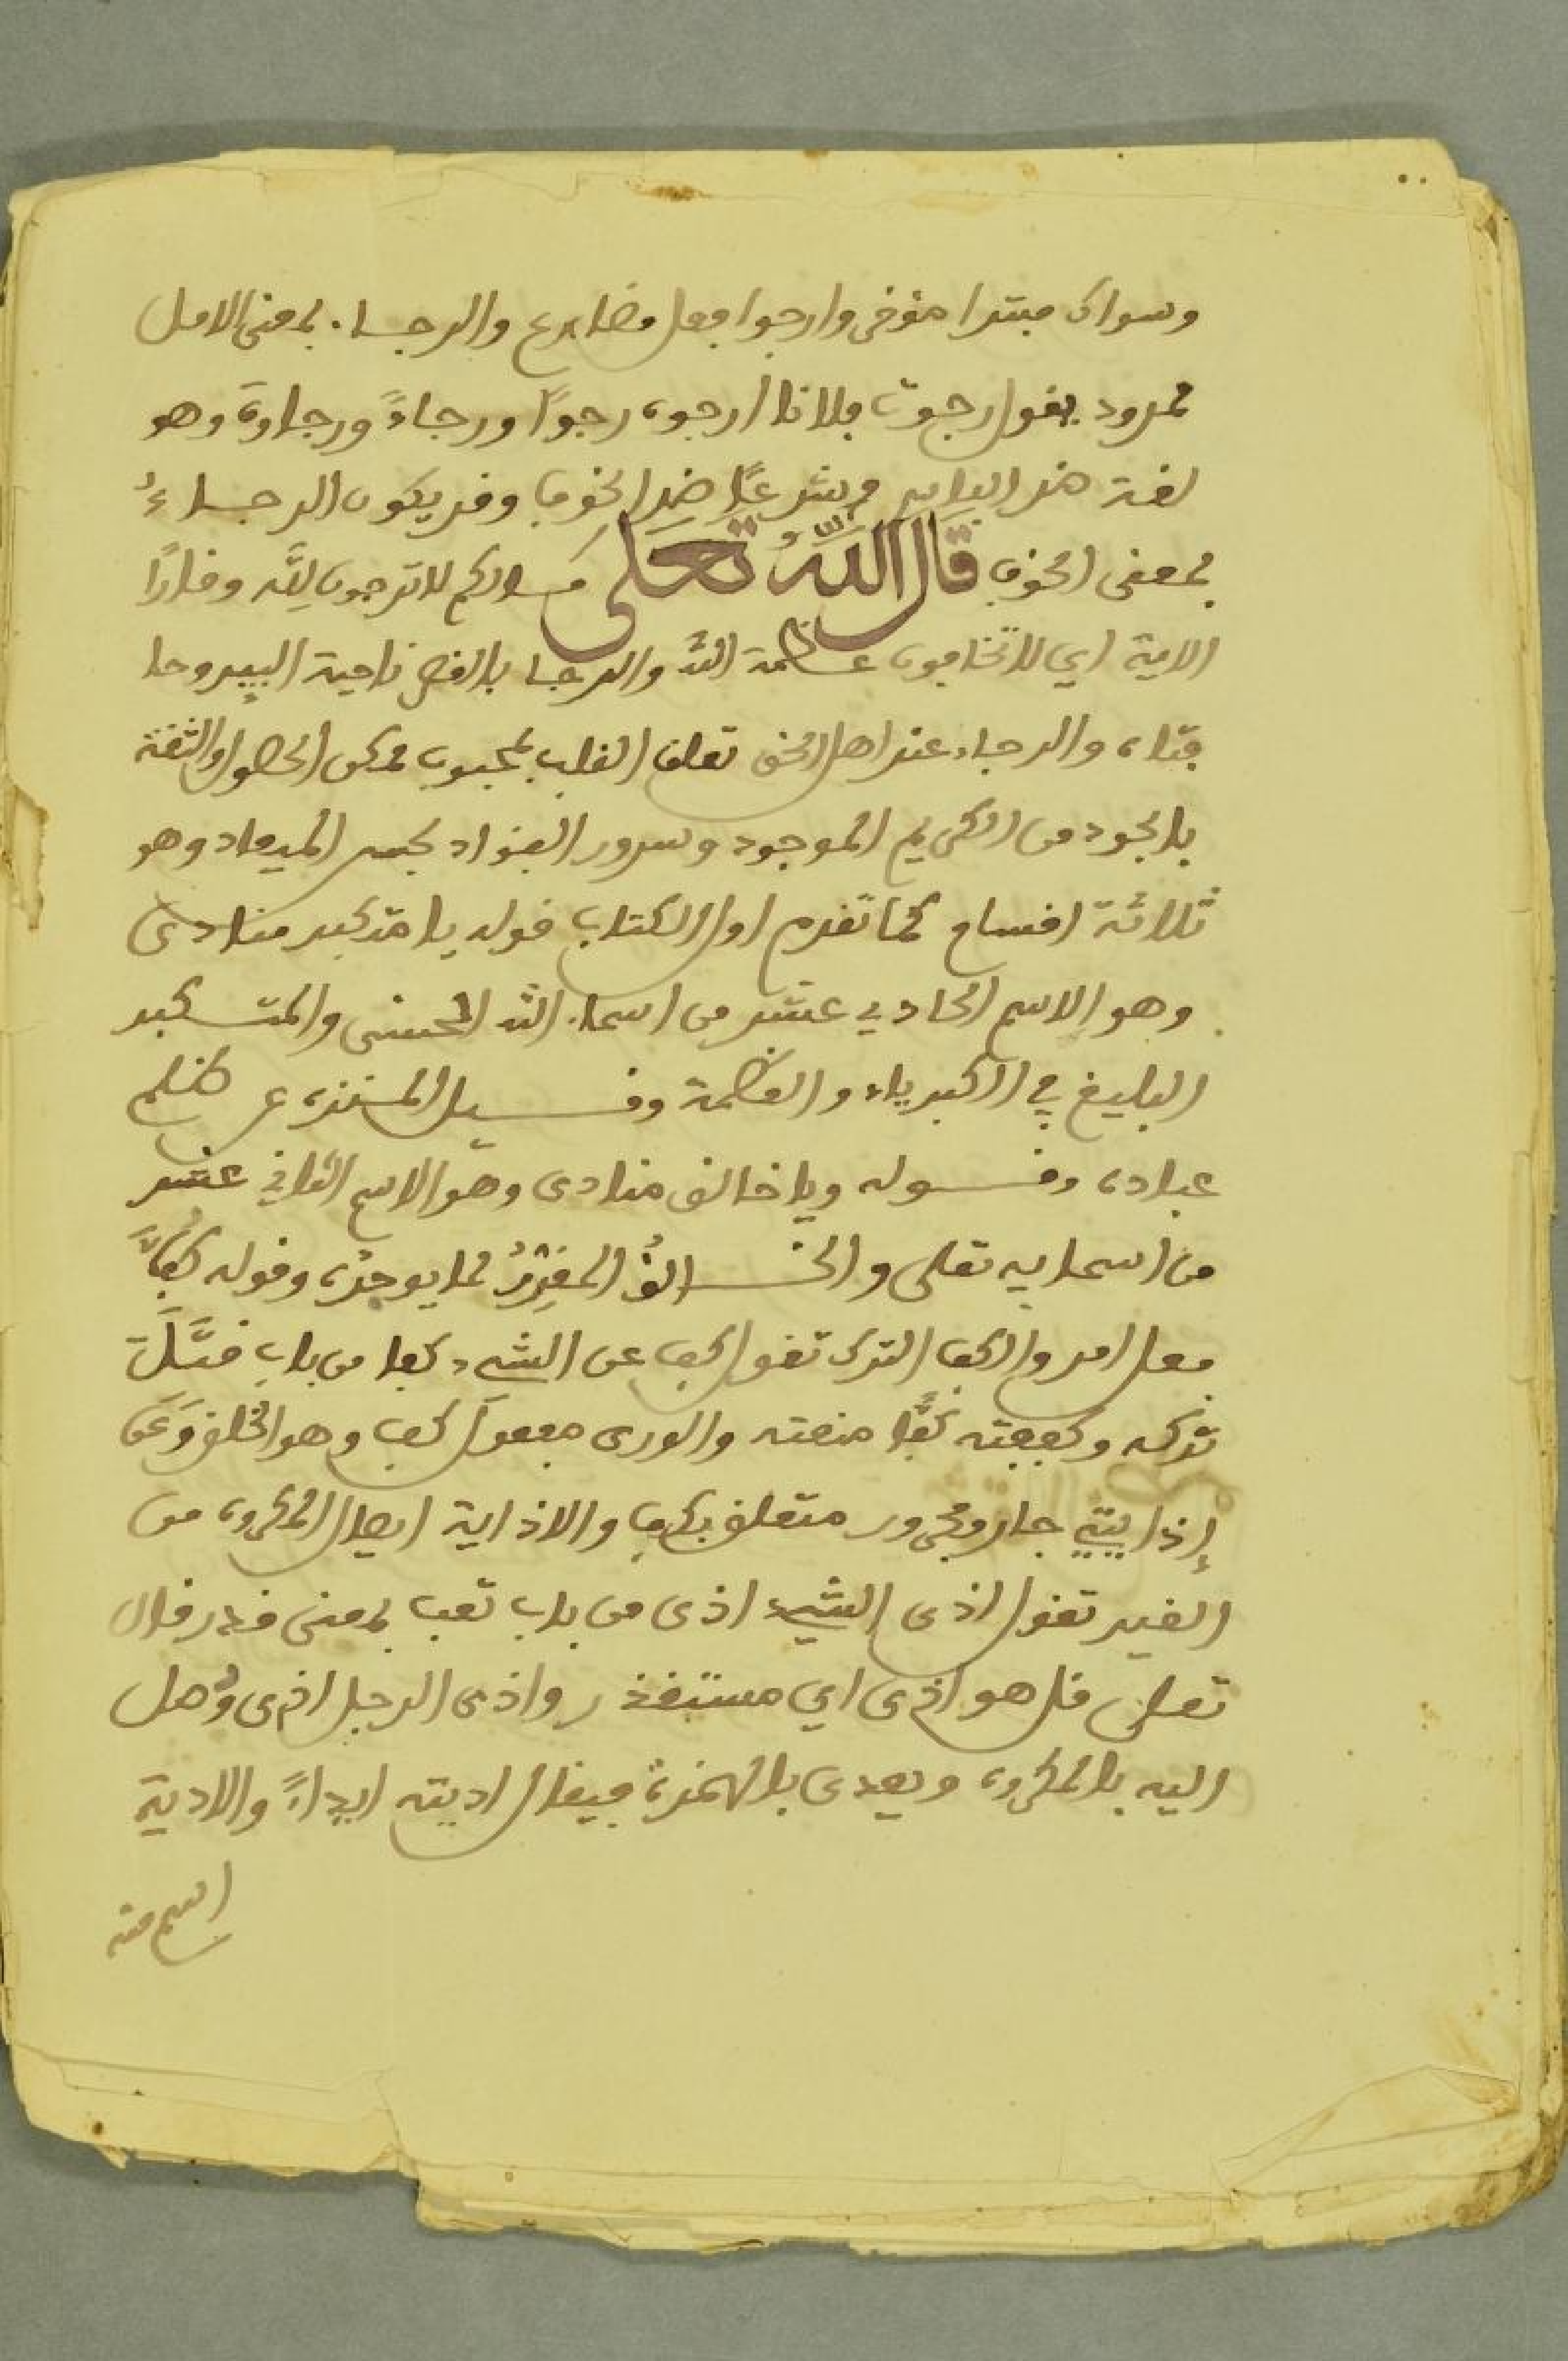 وسواك مبتدا مؤخر وارجوا فعل مضارع والرجاء بمعنى الامل
ممدود يقول رجوت فلانا ارجوه رجوًا ورجاءً ورجاوة وهو
لغة ضد الياس وشرعًا ضد الخوف وقد يكون الرجاءُ
بمعنى الخوف قال اللهُ تعلى مالكم لا ترجون لِلّه وقارًا
الاية اي لا تخافون عظمة الله والرجا بالقصر ناحية البير وحا
فتاه والرجاء عند اهل الحق تعلق القلب بمحبوب ممكن الحصول والثقة
بالجود من الكريم الموجود وسرور الفؤاد بحسن الميعاد وهو
ثلاثة اقسام كما تقدم اول الكتاب قوله يا متكبر منادى
وهو الاسم الحادي عشر من اسماء الله الحسنى والمتكبر
البليغ في الكبرياء والعظمة وقيل المتنزه عن ظلم
عباده وقوله ويا خالق منادى وهو الاسم الثاني عشر
من اسمايه تعلى والخالقُ المقدِّرُ لما يوجدُه وقوله كُفَّ
فعل امر والكف الترك تقول كف عن الشيء كفا من باب قتَلَ
تركه وكففته كفًّا منعته والورى مفعول كف وهو الخلق وَعَن
إذايتي جار ومجرور متعلق بكف والاذاية ايصال المكروه من
الغير تقول اذى الشيء اذى من باب تعب بمعنى قذر قال
تعلى قل هو اذى اي مستقذر واذى الرجل اذى وُصل
اليه بالمكروه ويعدى بالهمزة فيقال اديته ايداءً والادية
اسم منه